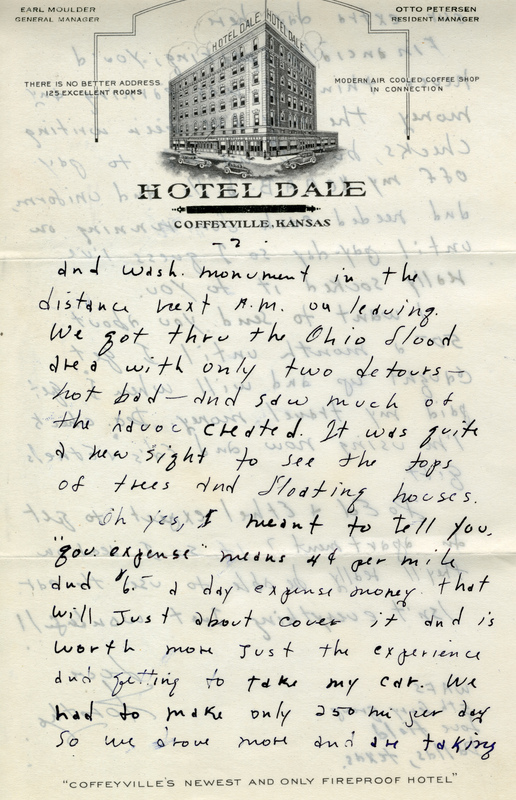 EARL MOULDER
GENERAL MANAGER
OTTO PETERSEN
RESIDENT MANAGER
HOTEL DALE HOTEL DALE
THERE IS NO BETTER ADDRESS
125 EXCELLENT ROOMS
MODERN AIR COOLED COFFEE SHOP
IN CONNECTION
HOTEL DALE
COFFEYVILLE, KANSAS
-2-
and Wash. monument in the
distance next A.M. on leaving.
We got thru the Ohio flood
area with only two detours—
not bad—and saw much of
the havoc created. It was quite
a new sight to see the tops
of trees and floating houses.
Oh yes, I meant to tell you,
"gov. expense" means 4¢ per mile
and $6.- a day expense money. That
will just about cover it and is
worth more just the experience
and getting to take my car. We
had to make only 250 mi per day
so we drove more and are taking
"COFFEYVILLE'S NEWEST AND ONLY FIREPROOF HOTEL"